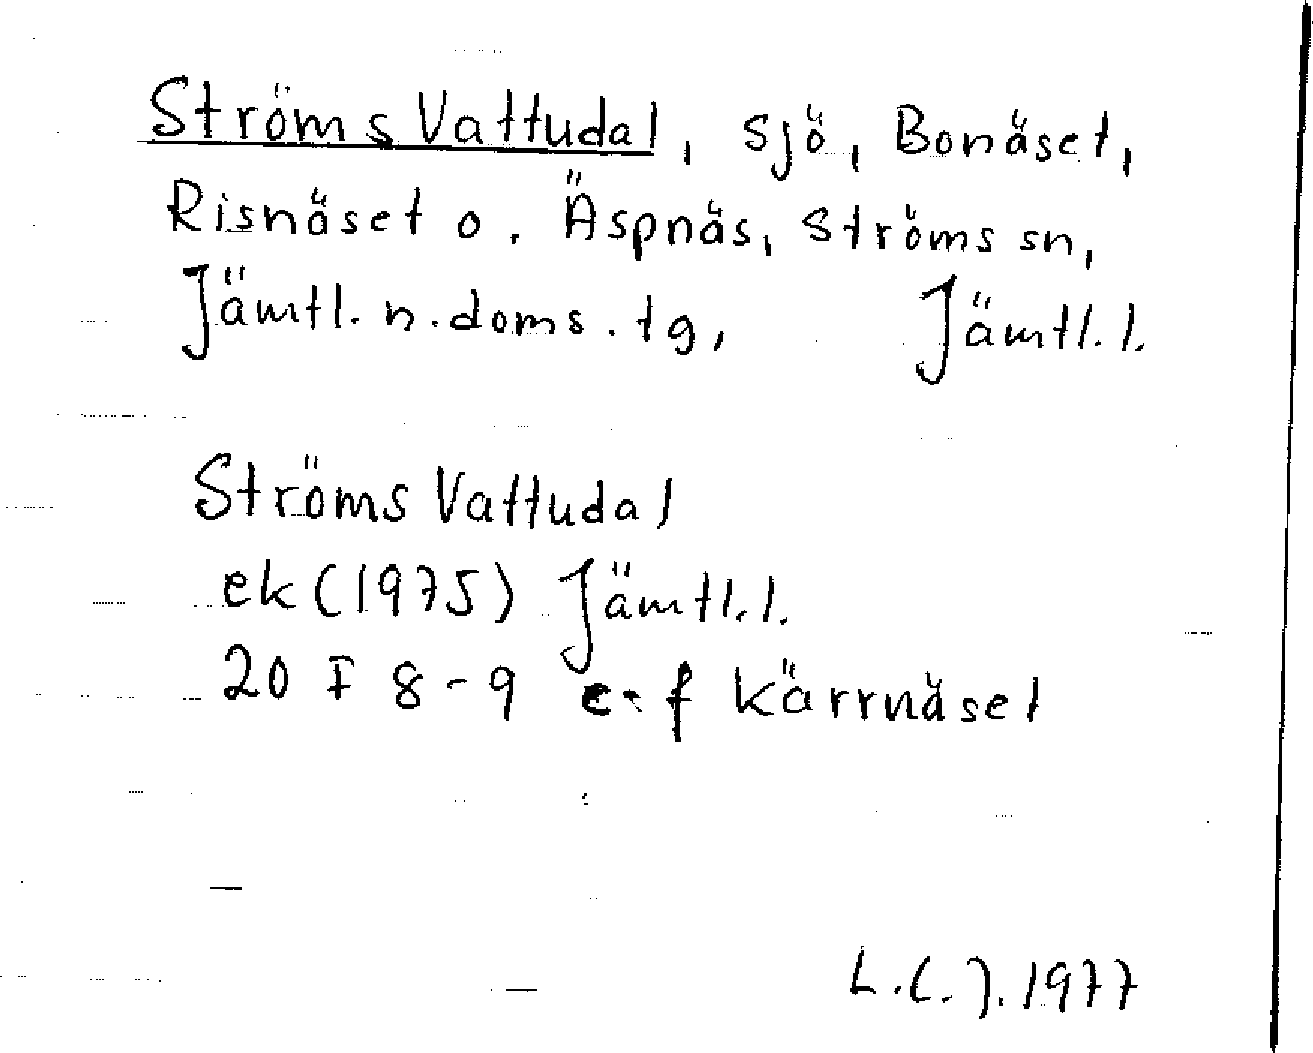 Ströms Vattudal, sjö, Bonäset,
Risnäset o. Äspnäs, Ströms sn,
Jämtl. n. doms. tg, Jämtl. l.
Ströms Vattudal
ek (1975) Jämtl. l.
20 F 8-9 e-f Kärrnäset
L.C.J. 1977